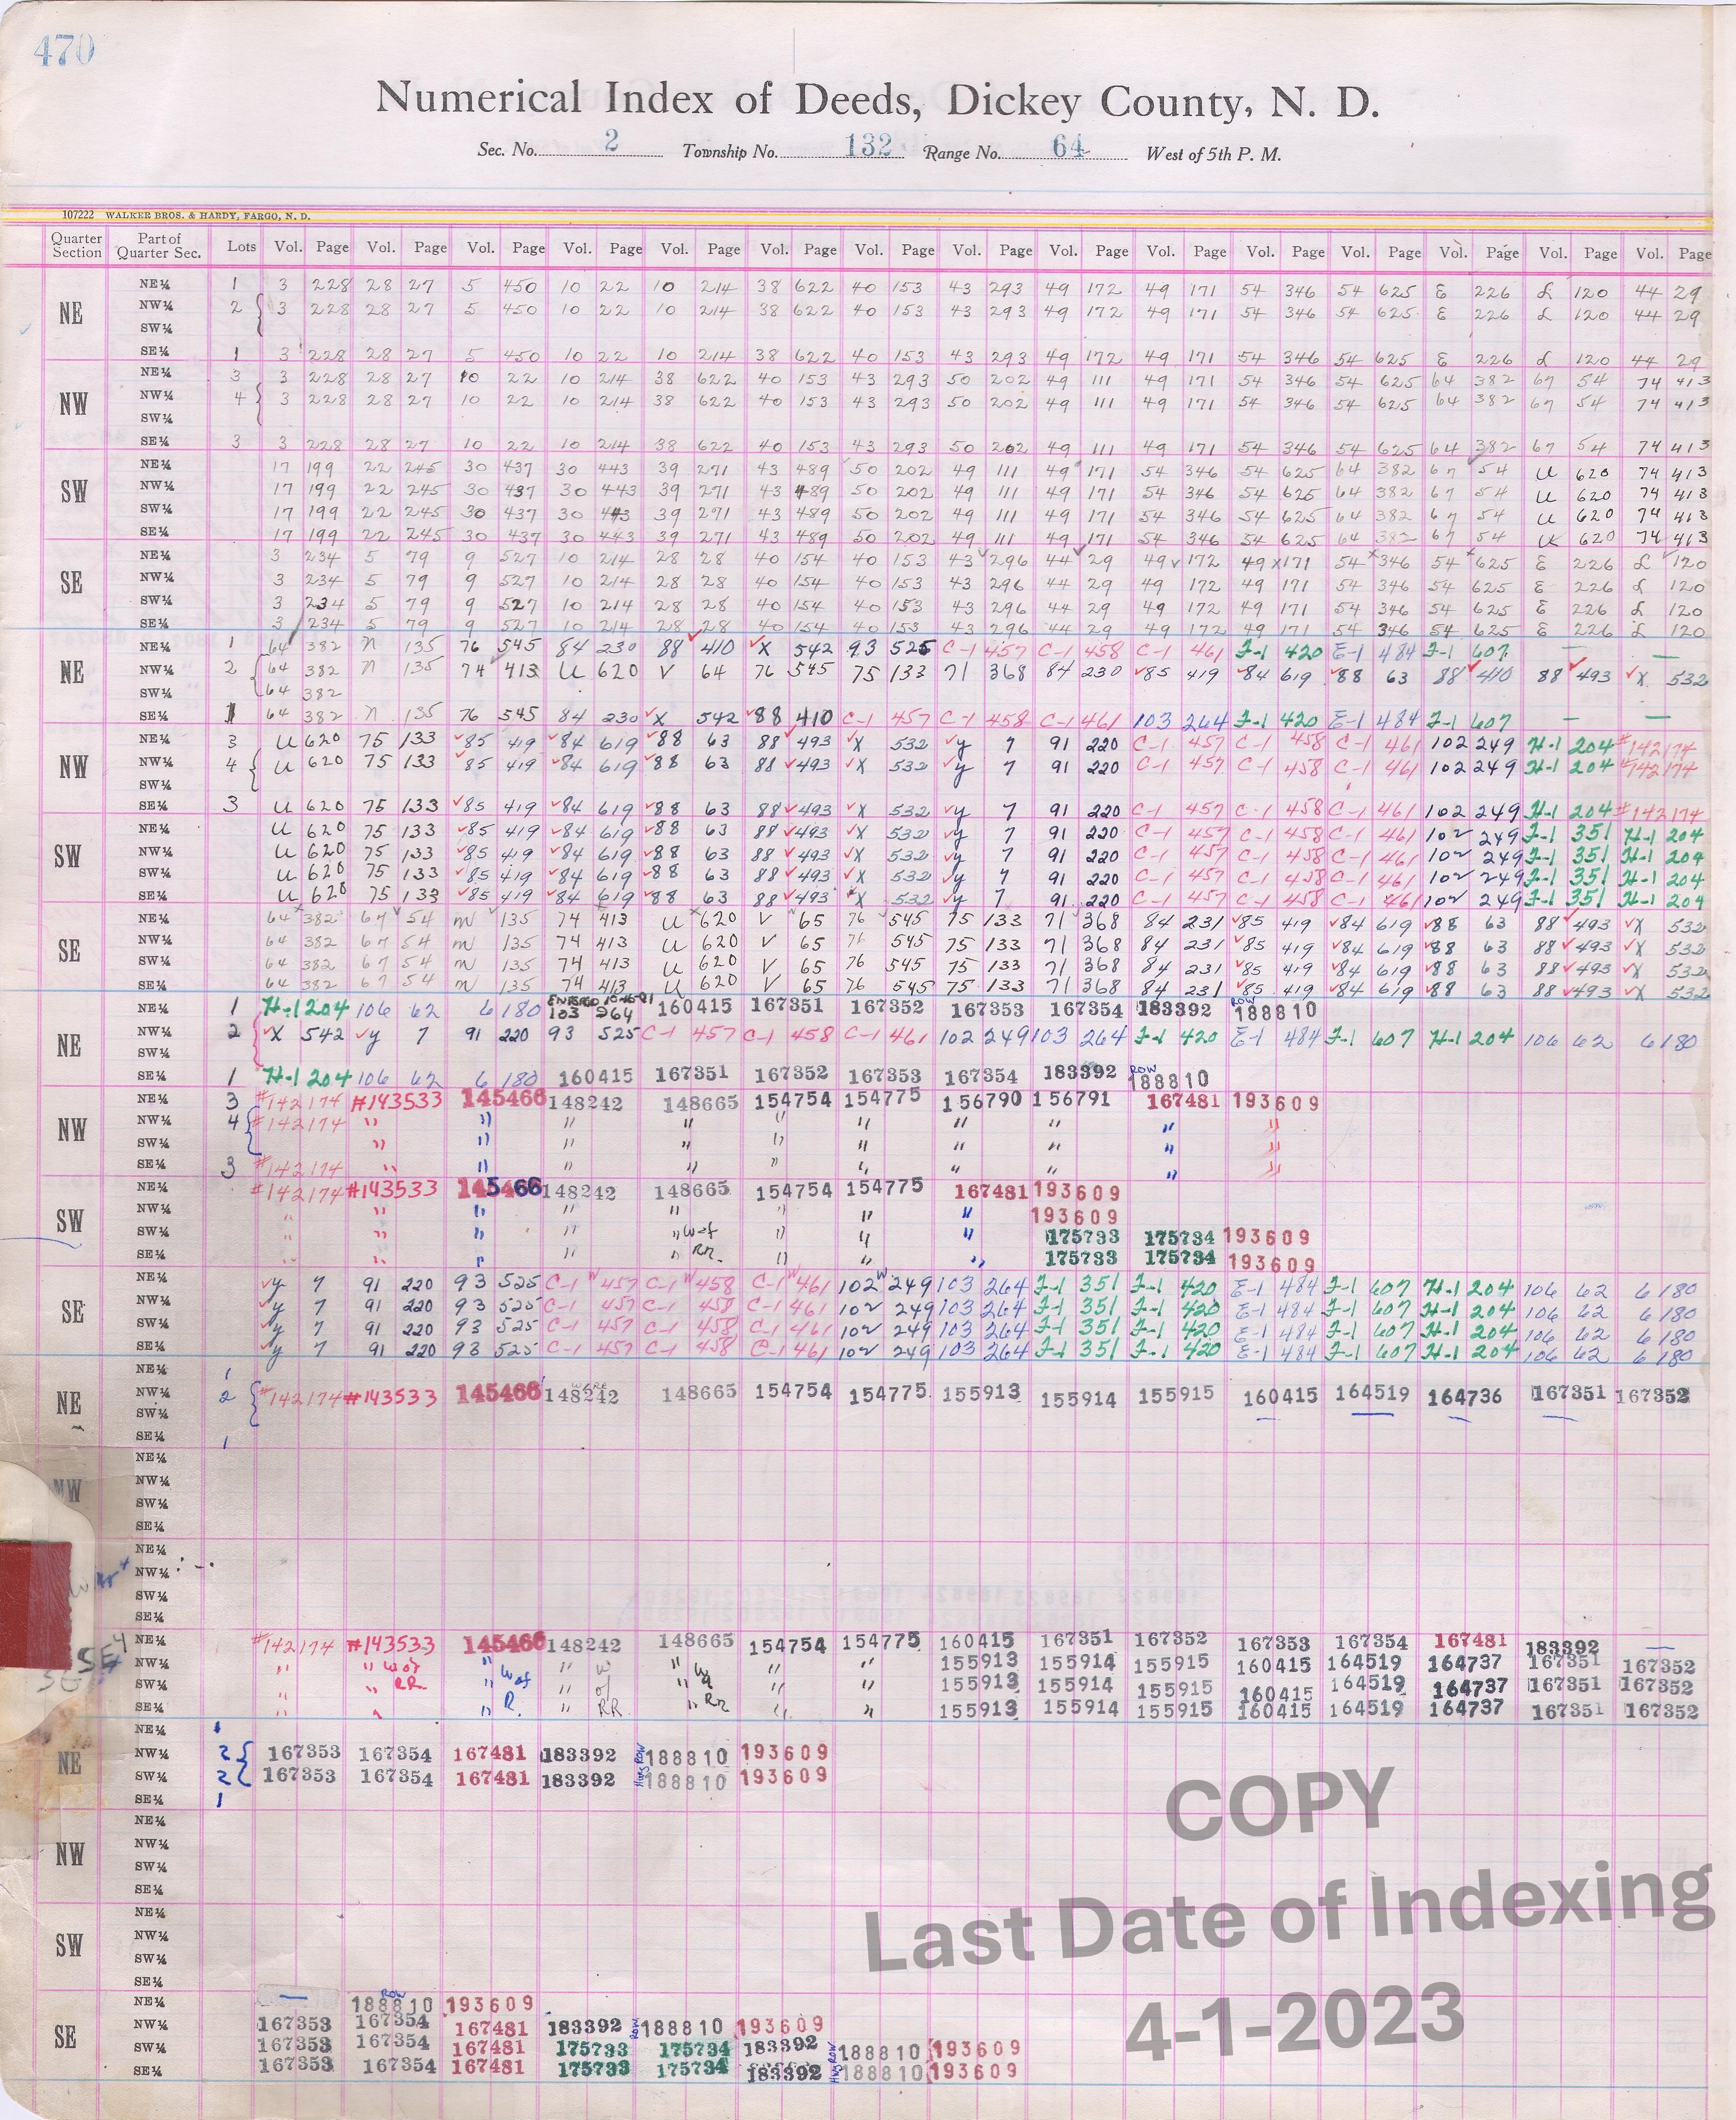 470
Numerical Index of Deeds, Dickey County, N. D.
Sec. No. 2 Township No. 132 Range No. 64 West of 5th P. M.
107222 WALKER BROS. & HARDY, FARGO, N. D.
Quarter Section Part of Quarter Sec. Lots Vol. Page Vol. Page Vol. Page Vol. Page Vol. Page Vol. Page Vol. Page Vol. Page Vol. Page Vol. Page Vol. Page Vol. Page Vol. Page Vol. Page Vol. Page
NE
NE¼ 1 3 228 28 27 5 450 10 22 10 214 38 622 40 153 43 293 49 172 49 171 54 346 54 625 E 226 L 120 44 29
NW¼ 2 3 228 28 27 5 450 10 22 10 214 38 622 40 153 43 293 49 172 49 171 54 346 54 625 E 226 L 120 44 29
SW¼
SE¼ 1 3 228 28 27 5 450 10 22 10 214 38 622 40 153 43 293 49 172 49 171 54 346 54 625 E 226 L 120 44 29
NW
NE¼ 3 3 228 28 27 10 22 10 214 38 622 40 153 43 293 50 202 49 111 49 171 54 346 54 625 64 382 67 54 74 413
NW¼ 4 3 228 28 27 10 22 10 214 38 622 40 153 43 293 50 202 49 111 49 171 54 346 54 625 64 382 67 54 74 413
SW¼
SE¼ 3 3 228 28 27 10 22 10 214 38 622 40 153 43 293 50 202 49 111 49 171 54 346 54 625 64 382 67 54 74 413
SW
NE¼ 17 199 22 245 30 437 30 443 39 271 43 489 50 202 49 111 49 171 54 346 54 625 64 382 67 54 U 620 74 413
NW¼ 17 199 22 245 30 437 30 443 39 271 43 489 50 202 49 111 49 171 54 346 54 625 64 382 67 54 U 620 74 413
SW¼ 17 199 22 245 30 437 30 443 39 271 43 489 50 202 49 111 49 171 54 346 54 625 64 382 67 54 U 620 74 413
SE¼ 17 199 22 245 30 437 30 443 39 271 43 489 50 202 49 111 49 171 54 346 54 625 64 382 67 54 U 620 74 413
SE
NE¼ 3 234 5 79 9 527 10 214 28 28 40 154 40 153 43 296 44 29 49 172 49 171 54 346 54 625 E 226 L 120
NW¼ 3 234 5 79 9 527 10 214 28 28 40 154 40 153 43 296 44 29 49 172 49 171 54 346 54 625 E 226 L 120
SW¼ 3 234 5 79 9 527 10 214 28 28 40 154 40 153 43 296 44 29 49 172 49 171 54 346 54 625 E 226 L 120
SE¼ 3 234 5 79 9 527 10 214 28 28 40 154 40 153 43 296 44 29 49 172 49 171 54 346 54 625 E 226 L 120
NE
NE¼ 1 64 382 n 135 76 545 84 230 88 410 X 542 93 525 C-1 457 C-1 458 C-1 461 F-1 420 E-1 484 F-1 607 —
NW¼ 2 64 382 n 135 74 413 U 620 V 64 76 545 75 133 71 368 84 230 85 419 84 619 88 63 88 410 88 493 X 532
SW¼ 64 382
SE¼ 1 64 382 n 135 76 545 84 230 X 542 88 410 C-1 457 C-1 458 C-1 461 103 264 F-1 420 E-1 484 F-1 607 — —
NW
NE¼ 3 U 620 75 133 85 419 84 619 88 63 88 493 X 532 y 7 91 220 C-1 457 C-1 458 C-1 461 102 249 H-1 204 #142174
NW¼ 4 U 620 75 133 85 419 84 619 88 63 88 493 X 532 y 7 91 220 C-1 457 C-1 458 C-1 461 102 249 H-1 204 #142174
SW¼
SE¼ 3 U 620 75 133 85 419 84 619 88 63 88 493 X 532 y 7 91 220 C-1 457 C-1 458 C-1 461 102 249 H-1 204 #142174
SW
NE¼ U 620 75 133 85 419 84 619 88 63 88 493 X 532 y 7 91 220 C-1 457 C-1 458 C-1 461 102 249 F-1 351 H-1 204
NW¼ U 620 75 133 85 419 84 619 88 63 88 493 X 532 y 7 91 220 C-1 457 C-1 458 C-1 461 102 249 F-1 351 H-1 204
SW¼ U 620 75 133 85 419 84 619 88 63 88 493 X 532 y 7 91 220 C-1 457 C-1 458 C-1 461 102 249 F-1 351 H-1 204
SE¼ U 620 75 133 85 419 84 619 88 63 88 493 X 532 y 7 91 220 C-1 457 C-1 458 C-1 461 102 249 F-1 351 H-1 204
SE
NE¼ 64 382 67 54 n 135 74 413 U 620 V 65 76 545 75 133 71 368 84 231 85 419 84 619 88 63 88 493 X 532
NW¼ 64 382 67 54 n 135 74 413 U 620 V 65 76 545 75 133 71 368 84 231 85 419 84 619 88 63 88 493 X 532
SW¼ 64 382 67 54 n 135 74 413 U 620 V 65 76 545 75 133 71 368 84 231 85 419 84 619 88 63 88 493 X 532
SE¼ 64 382 67 54 n 135 74 413 U 620 V 65 76 545 75 133 71 368 84 231 85 419 84 619 88 63 88 493 X 532
NE
NE¼ 1 H-1 204 106 62 6 180 103 264 160415 167351 167352 167353 167354 183392 ROW 188810
NW¼ 2 X 542 y 7 91 220 93 525 C-1 457 C-1 458 C-1 461 102 249 103 264 F-1 420 E-1 484 F-1 607 H-1 204 106 62 6 180
SW¼
SE¼ 1 H-1 204 106 62 6 180 160415 167351 167352 167353 167354 183392 ROW 188810
NW
NE¼ 3 #142174 #143533 145466 148242 148665 154754 154775 156790 156791 167481 193609
NW¼ 4 #142174 " " " " " " " " " "
SW¼ " " " " " " " " " "
SE¼ 3 #142174 " " " " " " " " "
SW
NE¼ #142174 #143533 145466 148242 148665 154754 154775 167481 193609
NW¼ " " " " " " " " 193609
SW¼ " " " " " W of " " " 175733 175734 193609
SE¼ " " " " " RR. " " " 175733 175734 193609
SE
NE¼ y 7 91 220 93 525 C-1 457 C-1 458 C-1 461 102 249 103 264 F-1 351 F-1 420 E-1 484 F-1 607 H-1 204 106 62 6 180
NW¼ y 7 91 220 93 525 C-1 457 C-1 458 C-1 461 102 249 103 264 F-1 351 F-1 420 E-1 484 F-1 607 H-1 204 106 62 6 180
SW¼ y 7 91 220 93 525 C-1 457 C-1 458 C-1 461 102 249 103 264 F-1 351 F-1 420 E-1 484 F-1 607 H-1 204 106 62 6 180
SE¼ y 7 91 220 93 525 C-1 457 C-1 458 C-1 461 102 249 103 264 F-1 351 F-1 420 E-1 484 F-1 607 H-1 204 106 62 6 180
NE
NE¼ 1
NW¼ 2 #142174 #143533 145466 148242 148665 154754 154775 155913 155914 155915 160415 164519 164736 167351 167352
SW¼
SE¼ 1
NW
NE¼
NW¼
SW¼
SE¼
NE¼
NW¼
SW¼
SE¼
SE4
NE¼ #142174 #143533 145466 148242 148665 154754 154775 160415 167351 167352 167353 167354 167481 183392 —
NW¼ " " W of " W of " W " W " " 155913 155914 155915 160415 164519 164737 167351 167352
SW¼ " " RR " " of " " " 155913 155914 155915 160415 164519 164737 167351 167352
SE¼ " " " R. " RR. " RR " " 155913 155914 155915 160415 164519 164737 167351 167352
NE
NE¼ 1
NW¼ 2 167353 167354 167481 183392 Hwy ROW 188810 193609
SW¼ 2 167353 167354 167481 183392 188810 193609
SE¼ 1
NW
NE¼
NW¼
SW¼
SE¼
SW
NE¼
NW¼
SW¼
SE¼
SE
NE¼ — ROW 188810 193609
NW¼ 167353 167354 167481 183392 ROW 188810 193609
SW¼ 167353 167354 167481 175733 175734 183392 Hwy ROW 188810 193609
SE¼ 167353 167354 167481 175733 175734 183392 188810 193609
COPY
Last Date of Indexing
4-1-2023